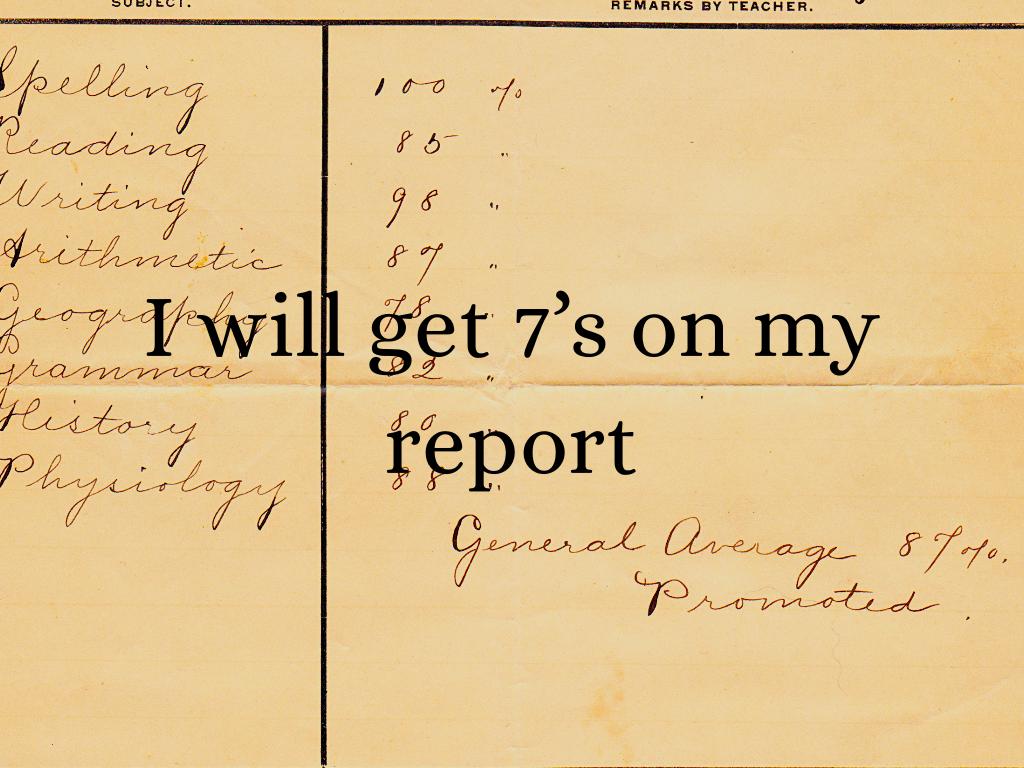 SUBJECT. REMARKS BY TEACHER.
Spelling 100 %
Reading 85 "
Writing 98 "
Arithmetic 87 "
Geography 78 "
I will get 7’s on my
Grammar 82 "
History 80 "
report
Physiology 88 "
General Average 87%.
Promoted.